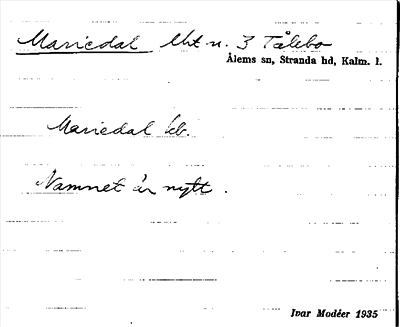 Mariedal lht n. 3 Tålebo
Ålems sn, Stranda hd, Kalm. l.
Mariedal
Namnet är nytt.
Ivar Modéer 1935